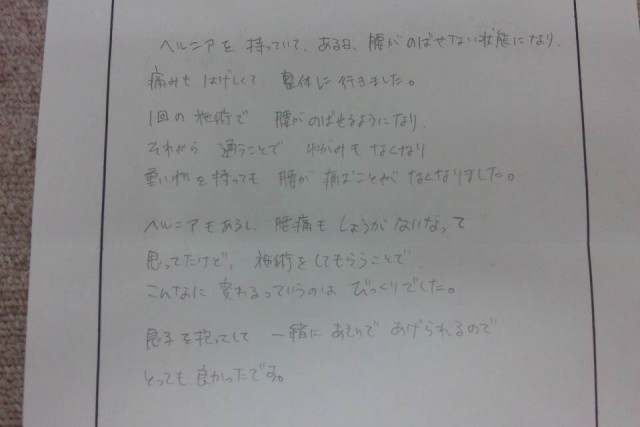 ヘルニアを 持っていて、ある日、腰がのばせない状態になり、
痛みも はげしくて 整体に 行きました。
1回の 施術で 腰がのばせるようになり、
それから 通うことで ゆがみも なくなり
重い物を 持っても 腰が 痛むことが なくなりました。
ヘルニアもあるし 腰痛も しょうがないなって
思ってたけど、 施術をしてもらうことで
こんなに 変わるっていうのは びっくりでした。
息子を 抱って 一緒に あそんで あげられるので
とっても 良かったです。